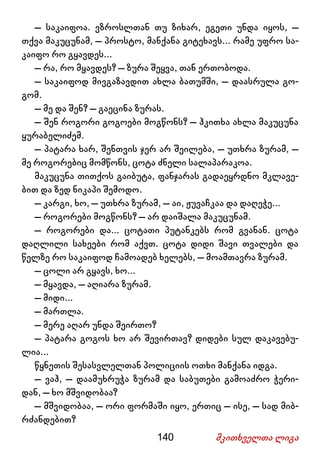 — საკაიფოა. ეზროსლთან თუ ზიხარ, ეგეთი უნდა იყოს, —
თქვა მაკუცუნამ, — პროსტო, მანქანა გიტეხავს... რამე უფრო სა-
კაიფო რო გყავდეს...
— რა, რო მყავდეს? — ზურა შეყვა, თან ერთობოდა.
— საკაიფოდ მივგაზავდით ახლა ბათუმში, — დაასრულა გო-
გომ.
— მე და შენ? — გაეცინა ზურას.
— შენ როგორი გოგოები მოგწონს? — ჰკითხა ახლა მაკუცუნა
ყურაბელიძემ.
— პატარა ხარ, შენთვის ჯერ არ შეილება, — უთხრა ზურამ, —
მე როგორებიც მომწონს, ცოტა ძნელი სალაპარაკოა.
მაკუცუნა თითქოს გაიბუტა, ფანჯარას გადაეყრდნო მკლავე-
ბით და ზედ ნიკაპი შემოდო.
— კარგი, ხო, — უთხრა ზურამ, — აი, ჟუვაჩკაა და დაღეჭე...
— როგორები მოგწონს? — არ დაიშალა მაკუცუნამ.
— როგორები და... ცოტათი პუტანკებს რომ გვანან. ცოტა
დაღლილი სახეები რომ აქვთ. ცოტა დიდი შავი თვალები და
წელზე რო საკაიფოდ ჩამოადებ ხელებს, — მოამთავრა ზურამ.
— ცოლი არ გყავს, ხო...
— მყავდა, — აღიარა ზურამ.
— მიდი...
— მართლა.
— მერე აღარ უნდა შეირთო?
— პატარა გოგოს ხო არ შევირთავ? დიდები სულ დაკავებუ-
ლია...
წყნეთის შესასვლელთან პოლიციის ოთხი მანქანა იდგა.
— ვაჰ, — დაამუხრუჭა ზურამ და საბუთები გამოაძრო ჭერი-
დან, — ხო მშვიდობაა?
— მშვიდობაა, — ორი ფორმაში იყო, ერთიც — ისე, — სად მიბ-
რძანდებით?
140 მკითხველთა ლიგა